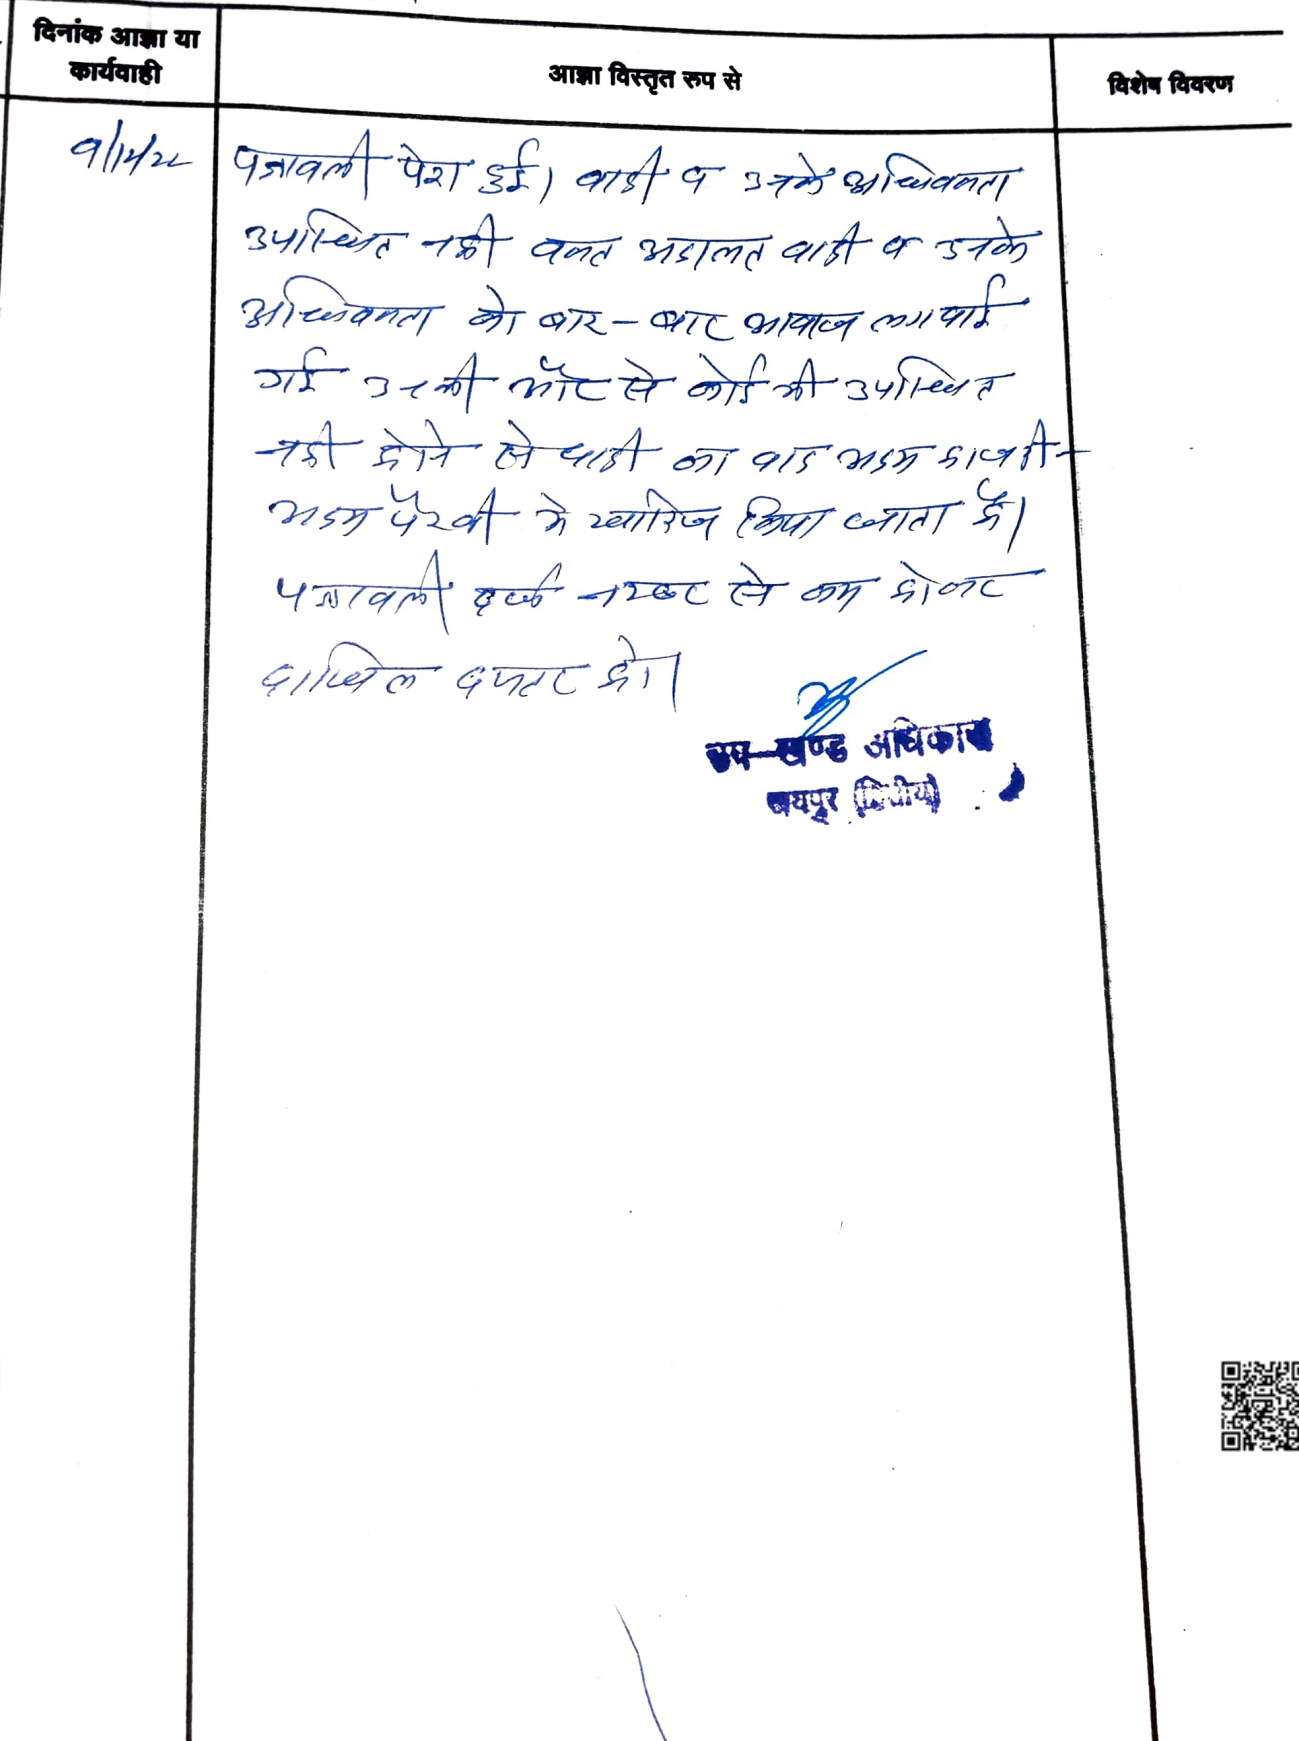 दिनांक आज्ञा या
कार्यवाही
आज्ञा विस्तृत रुप से
विशेष विवरण
9/12/22
पत्रावली पेश हुई। वादी व उनके अधिवक्ता
उपस्थित नही वक्त अदालत वादी व उनके
अधिवक्ता को बार-बार आवाज लगवाई
गई उनकी ओर से कोई भी उपस्थित
नही होने से वादी का वाद अदम हाजरी-
अदम पैरवी मे खारिज किया जाता है।
पत्रावली दर्ज नम्बर से कम होकर
दाखिल दफ्तर हो।
उप-खण्ड अधिकारी
जयपुर (द्वितीय)